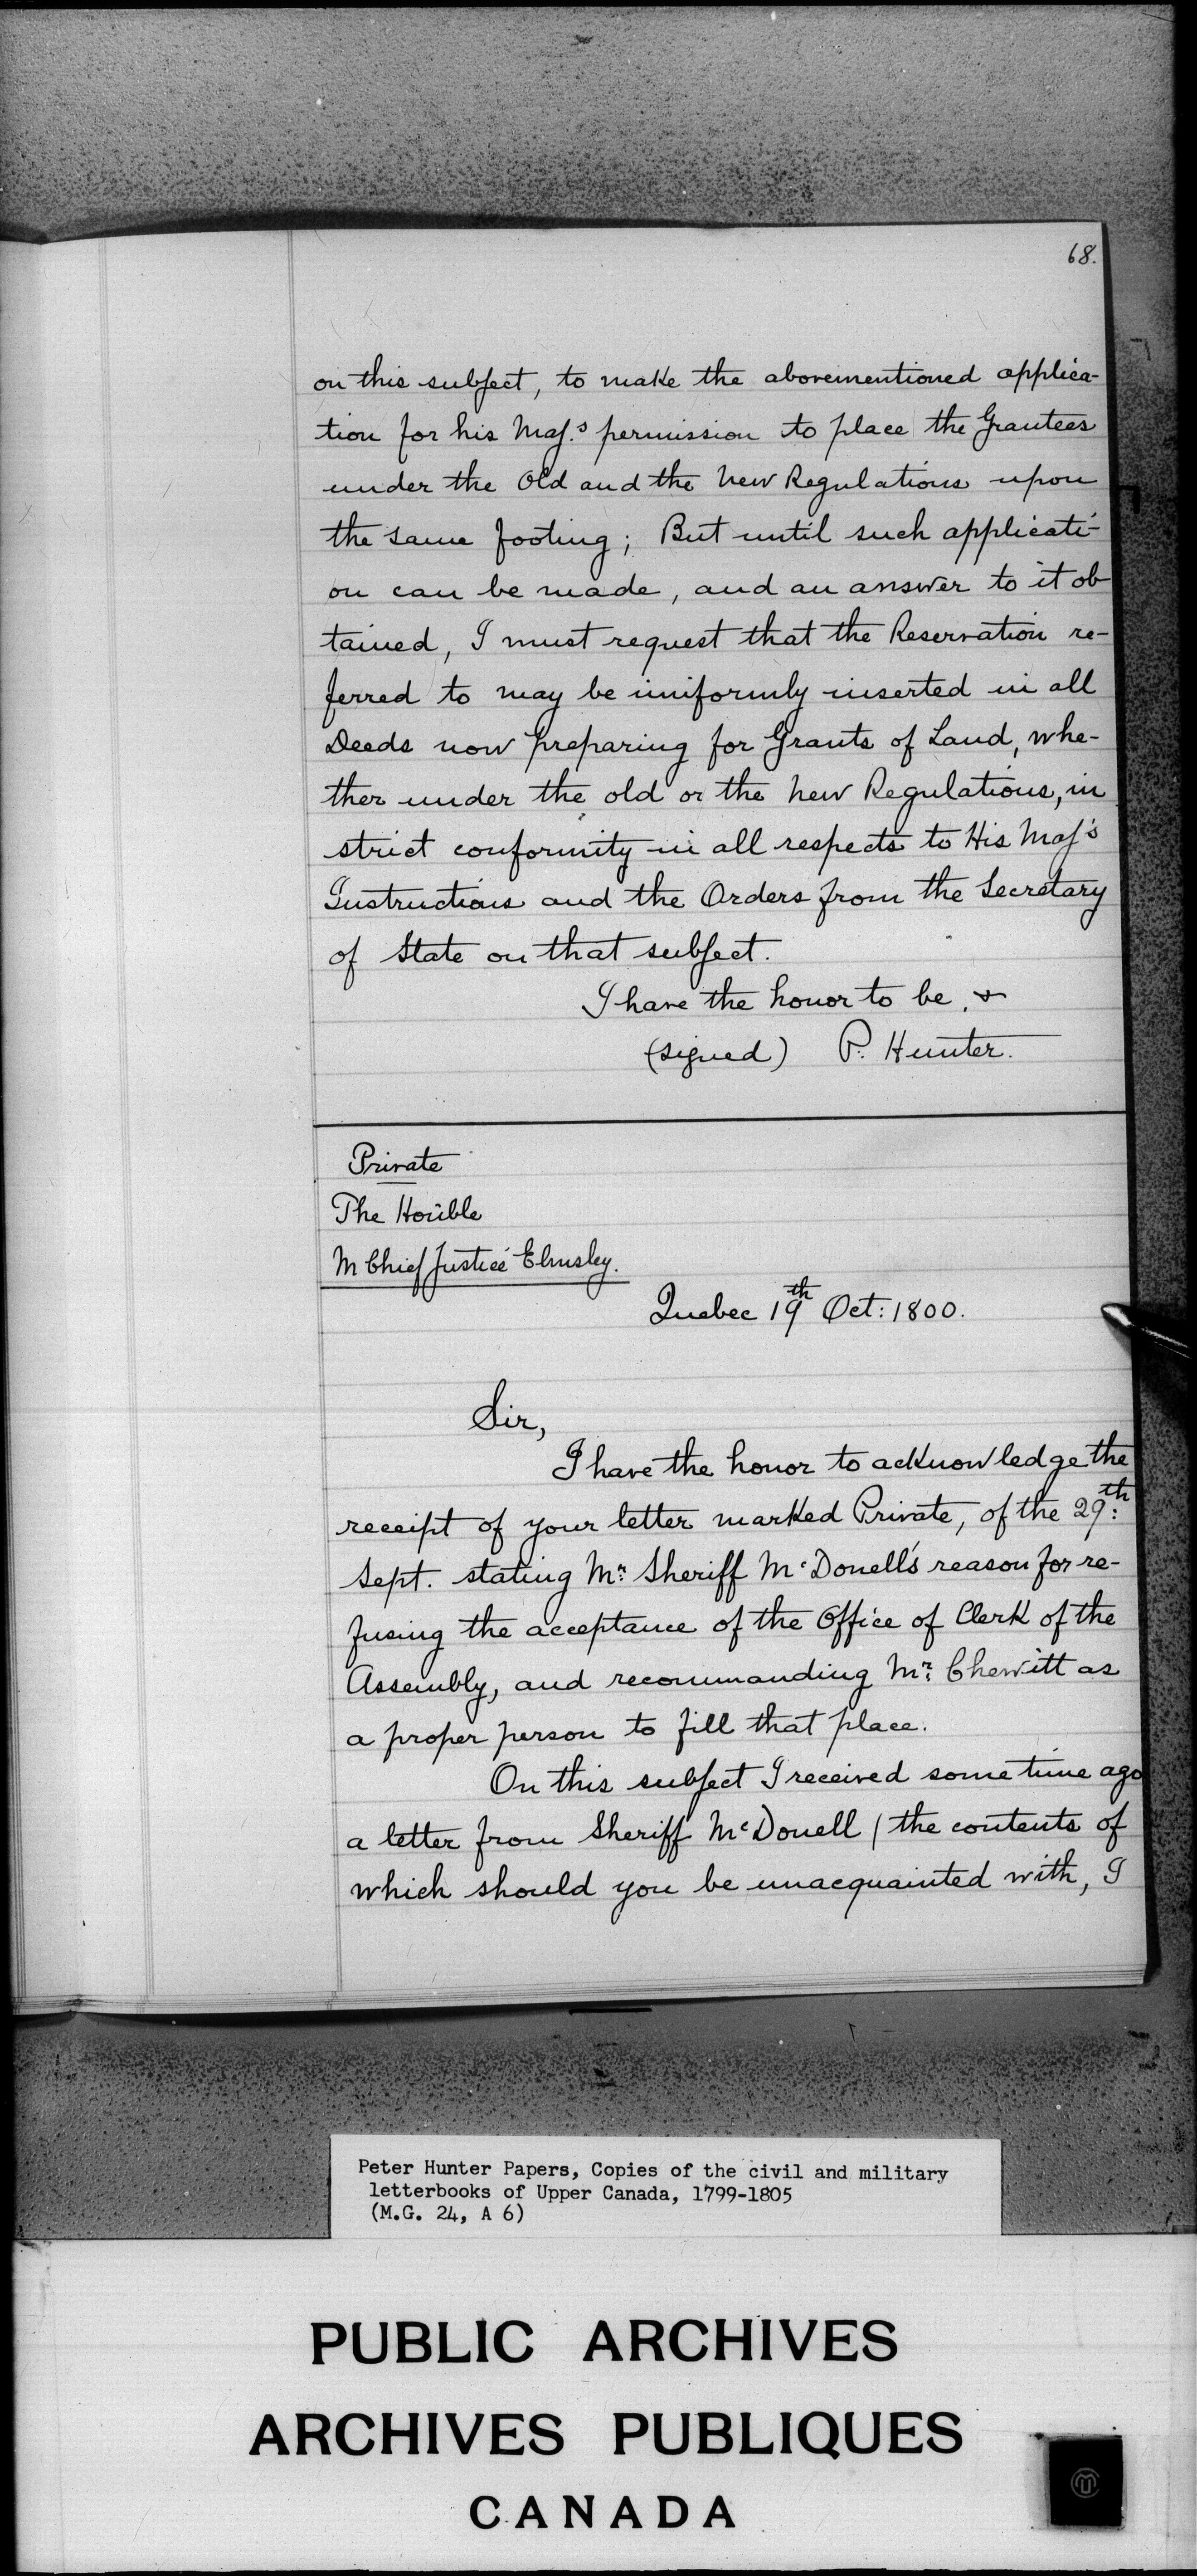 68.
on this subject, to make the abovementioned applica-
tion for his Maj.s permission to place the Grantees
under the Old and the New Regulations upon
the same footing; But until such applicati-
on can be made, and an answer to it ob
tained, I must request that the Reservation re-
ferred to may be uniformly inserted in all
Deeds now preparing for Grants of Land, whe-
ther under the old or the New Regulations, in
strict conformity in all respects to His Maj's
Instructions and the Orders from the Secretary
of State on that subject.
I have the honor to be, &
(signed) P. Hunter.
Private
The Honble
M Chief Justice Elmsley.
Quebec 19th Oct: 1800.
Sir,
I have the honor to acknowledge the
receipt of your letter marked Private, of the 29th:
Sept. stating Mr: Sheriff McDonell's reason for re-
fusing the acceptance of the Office of Clerk of the
Assembly, and recommanding Mr: Chewitt as
a proper person to fill that place.
On this subject I received some time ago
a letter from Sheriff McDonell (the contents of
which should you be unacquainted with, I
Peter Hunter Papers, Copies of the civil and military
letterbooks of Upper Canada, 1799-1805
(M.G. 24, A 6)
PUBLIC ARCHIVES
ARCHIVES PUBLIQUES
CANADA